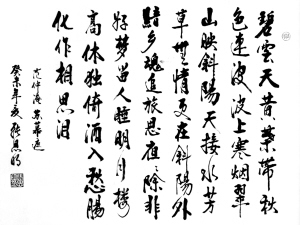 碧雲天黄葉地秋
色連波波上寒烟翠
山映斜陽天接水芳
草無情更在斜陽外
黯乡魂追旅思夜〻除非
好梦留人睡明月楼
高休独倚酒入愁腸
化作相思泪
范仲淹 苏幕遮
癸未年夏